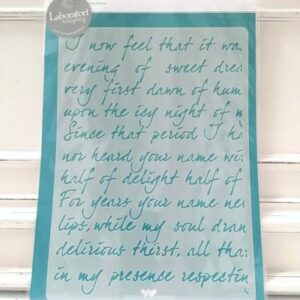 Laboratori
I now feel that it wa
evening of sweet drea
very first dawn of hum
upon the icy night of n
Since that period I ha
nor heard your name wi
half of delight half of
For years your name ne
lips, while my soul dran
delirious thirst, all tha
in my presence respectin